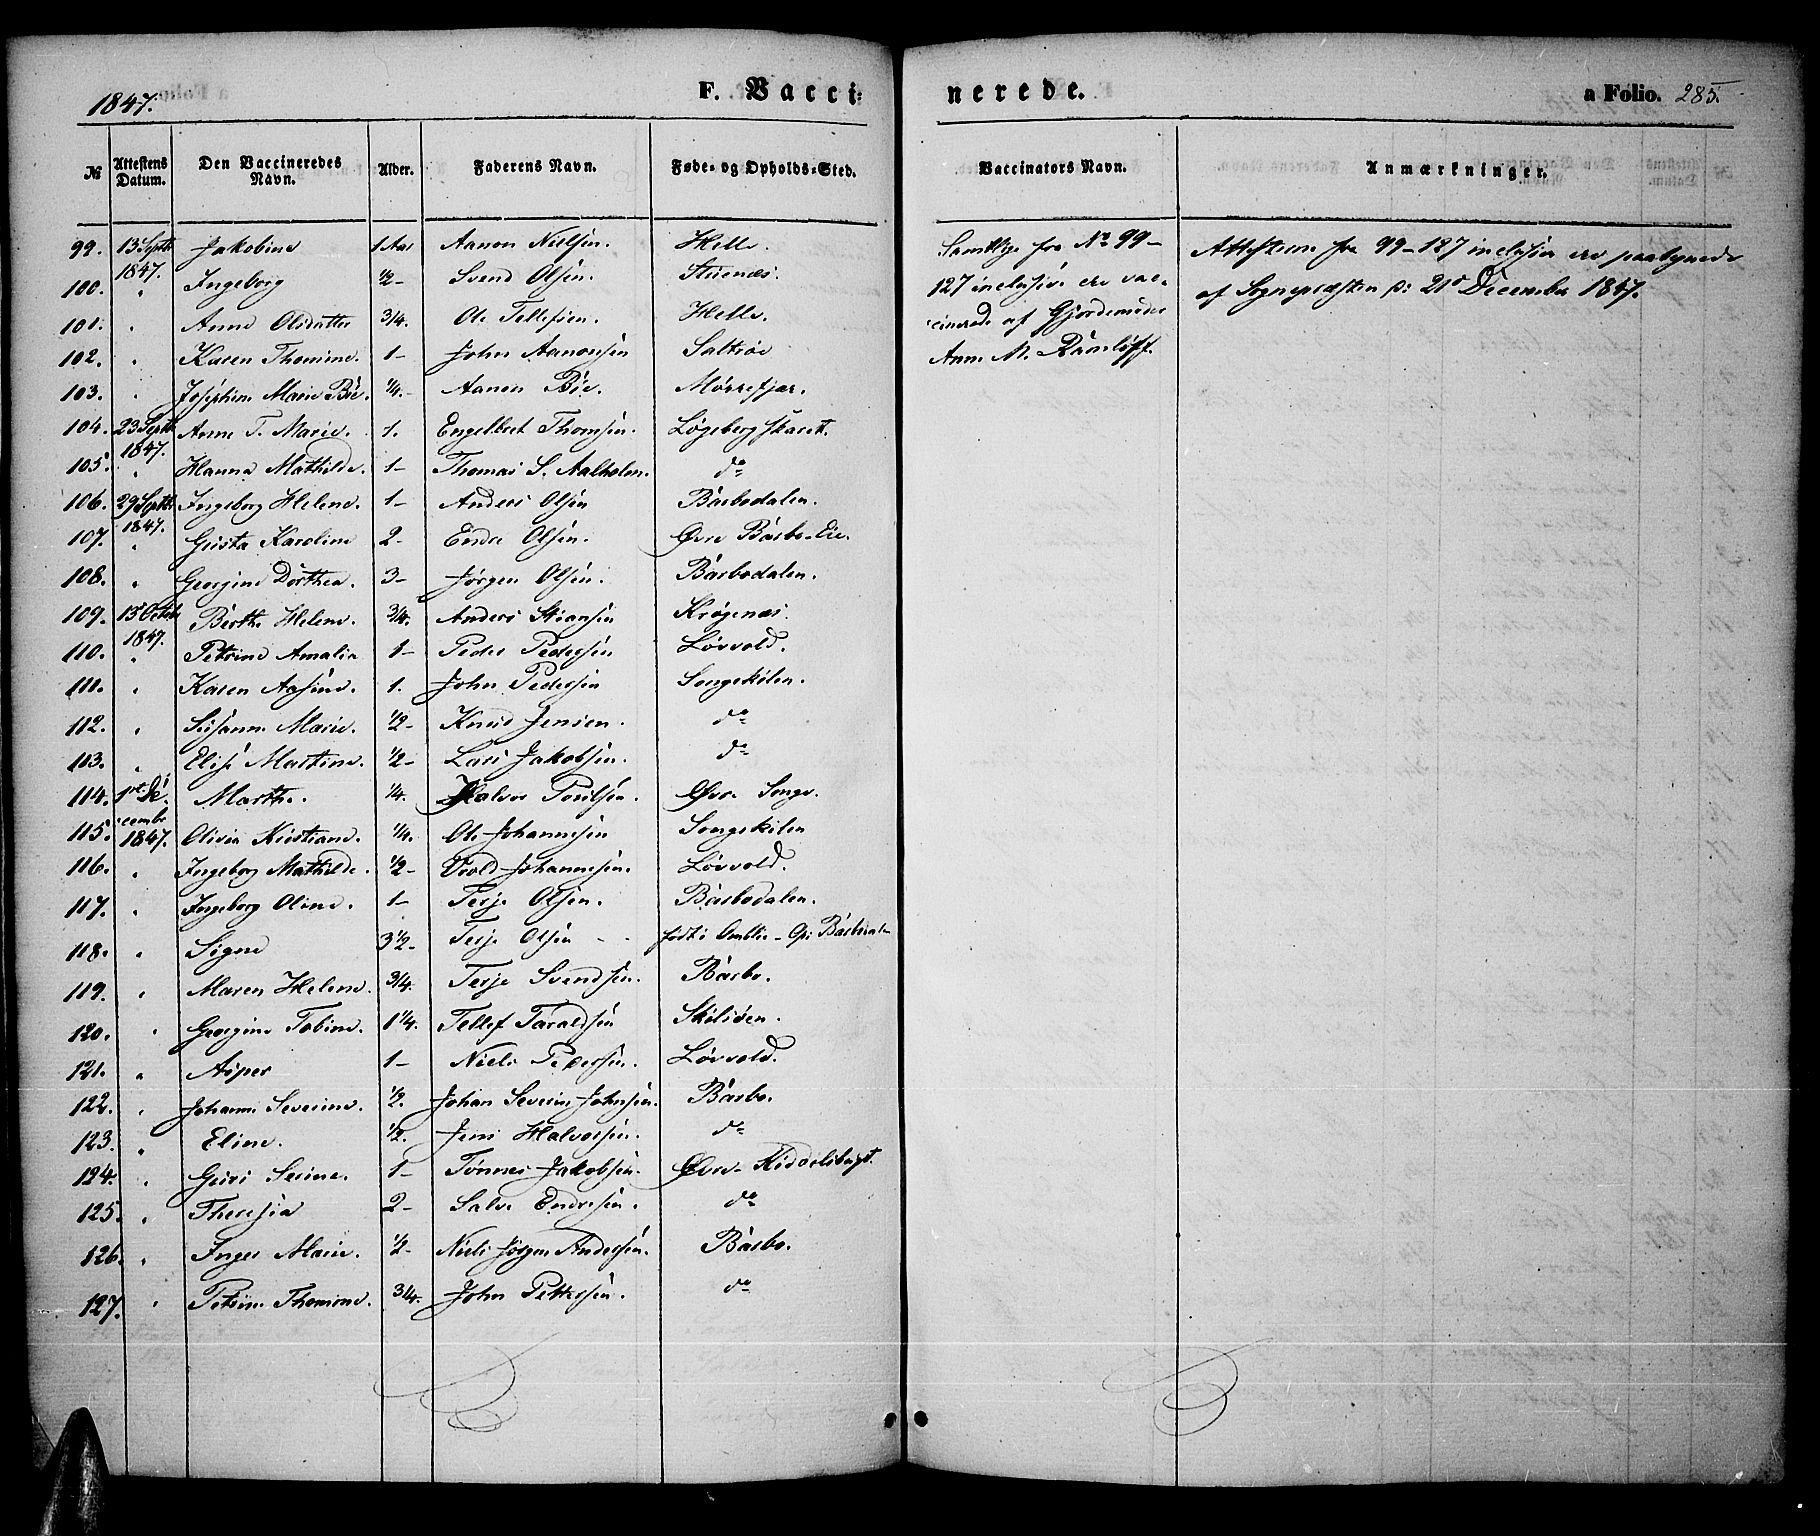 1847. F. Vaccinerede. a Folio. 285.
№ Attestens Datum. Den Vaccineredes Navn. Alder. Faderens Navn. Føde- og Opholds-Sted. Vaccinators Navn. Anmærkninger.
99. 13 Septb. Jakobine 1 Aar Aanon Nielsen. Helle. Samtlige fra No 99- Attesterne fra 99-127 inclusive ere paategnede
100. 1847. " Ingeborg 1/2- Svend Olsen. Stuenæs. 127 inclusive ere vac- af Sognepræsten p: 21de December 1847.
101. " Anne Olsdatter 3/4. Ole Tellefsen. Helle. cinerede af Gjordemoder
102. " Karen Thomine. 1- John Aanonsen Saltrøe Ann M.
103. " Josephine Marie Bie. 1/4.- Aanon Bie. Mørrefjær.
104. 23 Septb. Anne T. Marie. 1. Engelbret Thomsen. Løgebergskaret.
105. 1847. " Hanna Mathilde. 1- Thomas S. Aalholm. do
106. 29 Septb. Ingeborg Helene. 1- Anders Olsen Barbodalen.
107. 1847. " Gusta Karoline 2- Endre Olsen. Øvre Barbo-Eie.
108. " Georgine Dorthea. 3- Jørgen Olsen. Barbodalen.
109. 13 Octob. Berthe Helene. 3/4. Anders Stiansen Krøgenæs.
110. 1847. " Petrine Amalia 1- Peder Pedersen Løvvold.
111. " Karen Aasine. 1. John Pedersen Songekilen.
112. " Susanne Marie. 1/2- Knud Jensen. do
113. " Elise Martine. 1/2- Lars Jakobsen. do
114. 1ste De- Marthe. 1/4. Halvor Poulsen. Øvre Songe.
115. cembr 1847. Olivia Kristiane. 1/4. Ole Johannesen Songekilen
116. " Ingeborg Mathilde. 1/2- Vrold Johannesen. Løvvold.
117. " Ingeborg Oline. 1- Terje Olsen. Barbodalen.
118. " Signe 3 1/2- Terje Olsen - - født i Omblie- Op: Barbodalen
119. " Maren Helene. 3/4. Terje Svendsen. Barbo.
120. " Georgine Tobine. 1 1/4. Tellef Taraldsen Skilsøen.
121. " Asper 1- Niels Pedersen. Løvvold.
122. " Johanne Severine. 1/2. Johan Severin Johnsen. Barbo.
123. " Eline. 1/2. Jens Halvorsen. do
124. " Guri Serine. 1- Tønnes Jakobsen. Øvre Kiddelsbugt.
125. " Theresia 2- Salve Endresen. do
126. " Inger Marie. 1/2- Niels Jørgen Andersen. Barbo.
127. " Petrine Thomine. 3/4. John Pettersen. do